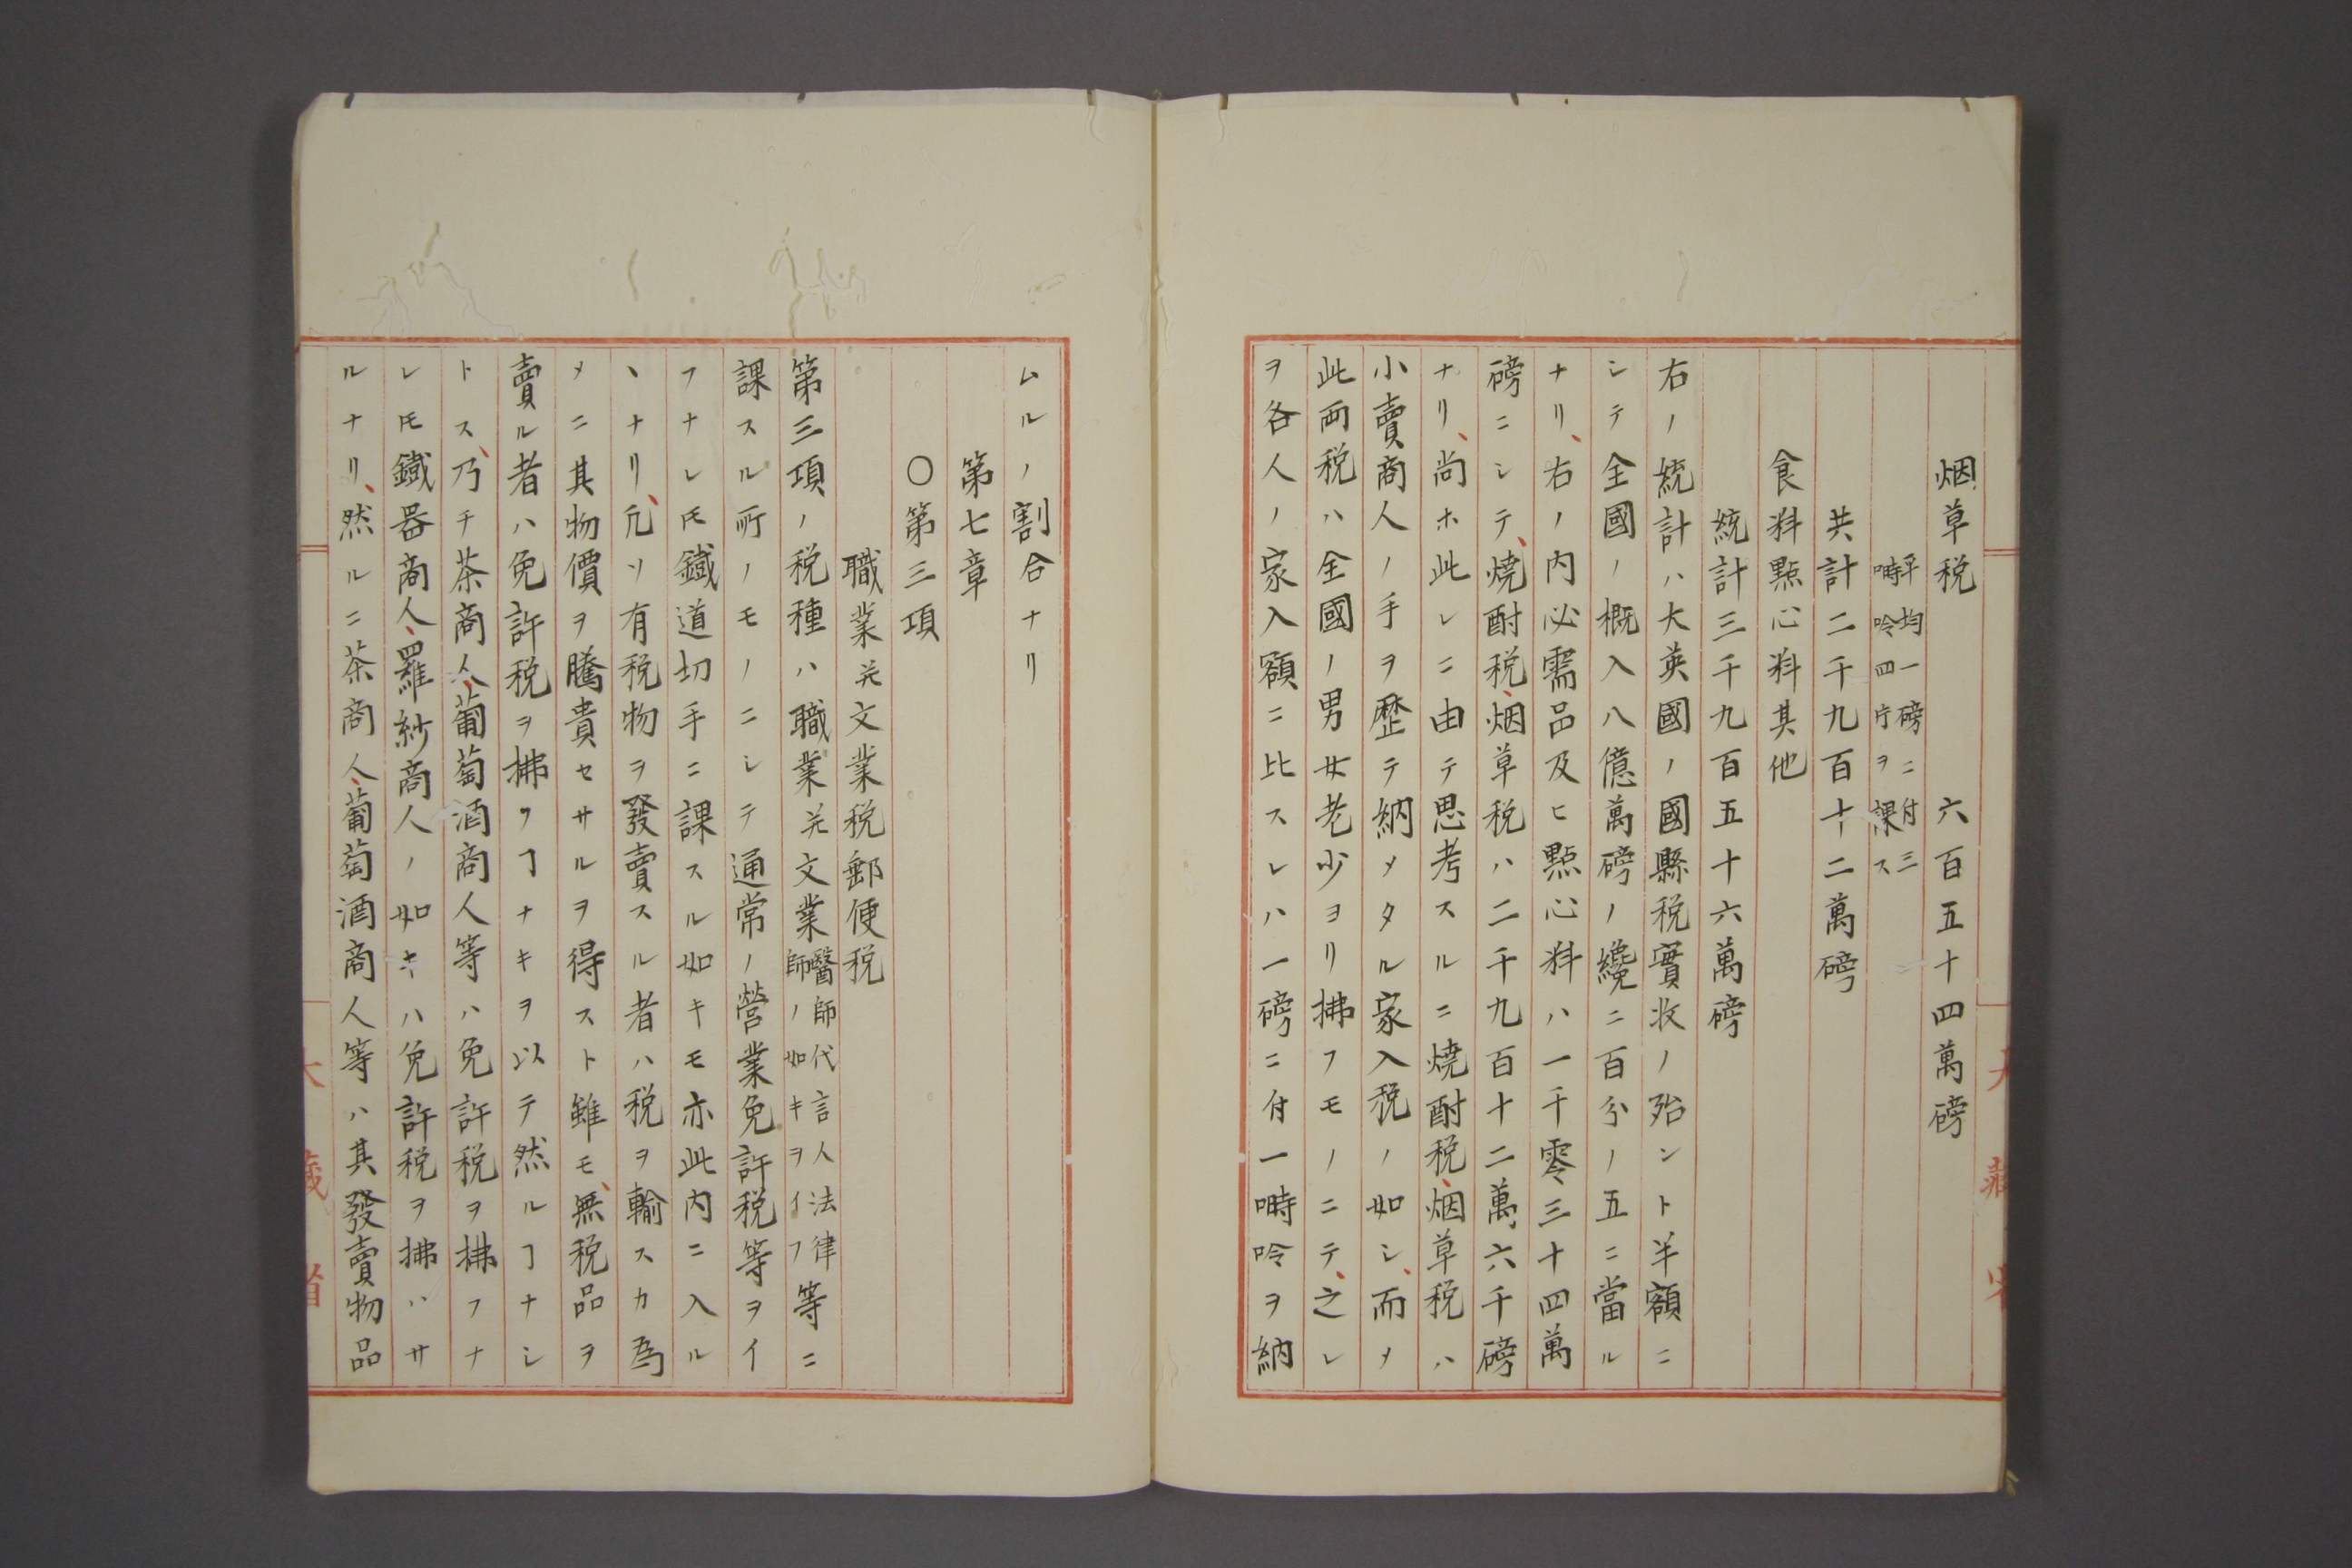 烟草税　六百五十四萬磅
平均一磅ニ付三
時呤四片ヲ課ス
共計二千九百十二萬磅
食料㸃心料其他
統計三千九百五十六萬磅
右ノ統計ハ大英國ノ國縣税實收ノ殆ント半額ニ
シテ全國ノ概入八億萬磅ノ纔ニ百分ノ五ニ當ル
ナリ、右ノ内必需品及ヒ㸃心料ハ一千零三十四萬
磅ニシテ、燒酎税、烟草税ハ二千九百十二萬六千磅
ナリ、尚ホ此レニ由テ思考スルニ燒酎税、烟草税ハ
小賣商人ノ手ヲ歴テ納メタル家入税ノ如シ、而メ
此兩税ハ全國ノ男女老少ヨリ拂フモノニテ、之レ
ヲ各人ノ家入額ニ比スレハ一磅ニ付一時呤ヲ納
ムルノ割合ナリ
第七章
〇第三項
職業并文業税郵便税
第三項ノ税種ハ職業并文業醫師代言人法律師ノ如キヲイフ等ニ
課スル所ノモノニシテ通常ノ營業免許税等ヲイ
フナレ𪜈鐵道切手ニ課スル如キモ亦此内ニ入ル
ヽナリ、元ソ有税物ヲ發賣スル者ハ税ヲ輸スカ為
メニ其物價ヲ騰貴セサルヲ得スト雖モ、無税品ヲ
賣ル者ハ免許税ヲ拂フヿナキヲ以テ然ルヿナシ
トス、乃チ茶商人、葡萄酒商人等ハ免許税ヲ拂フナ
レ𪜈鐵器商人、羅紗商人ノ如キハ免許税ヲ拂ハサ
ルナリ、然ルニ茶商人、葡萄酒商人等ハ其發賣物品
大藏省